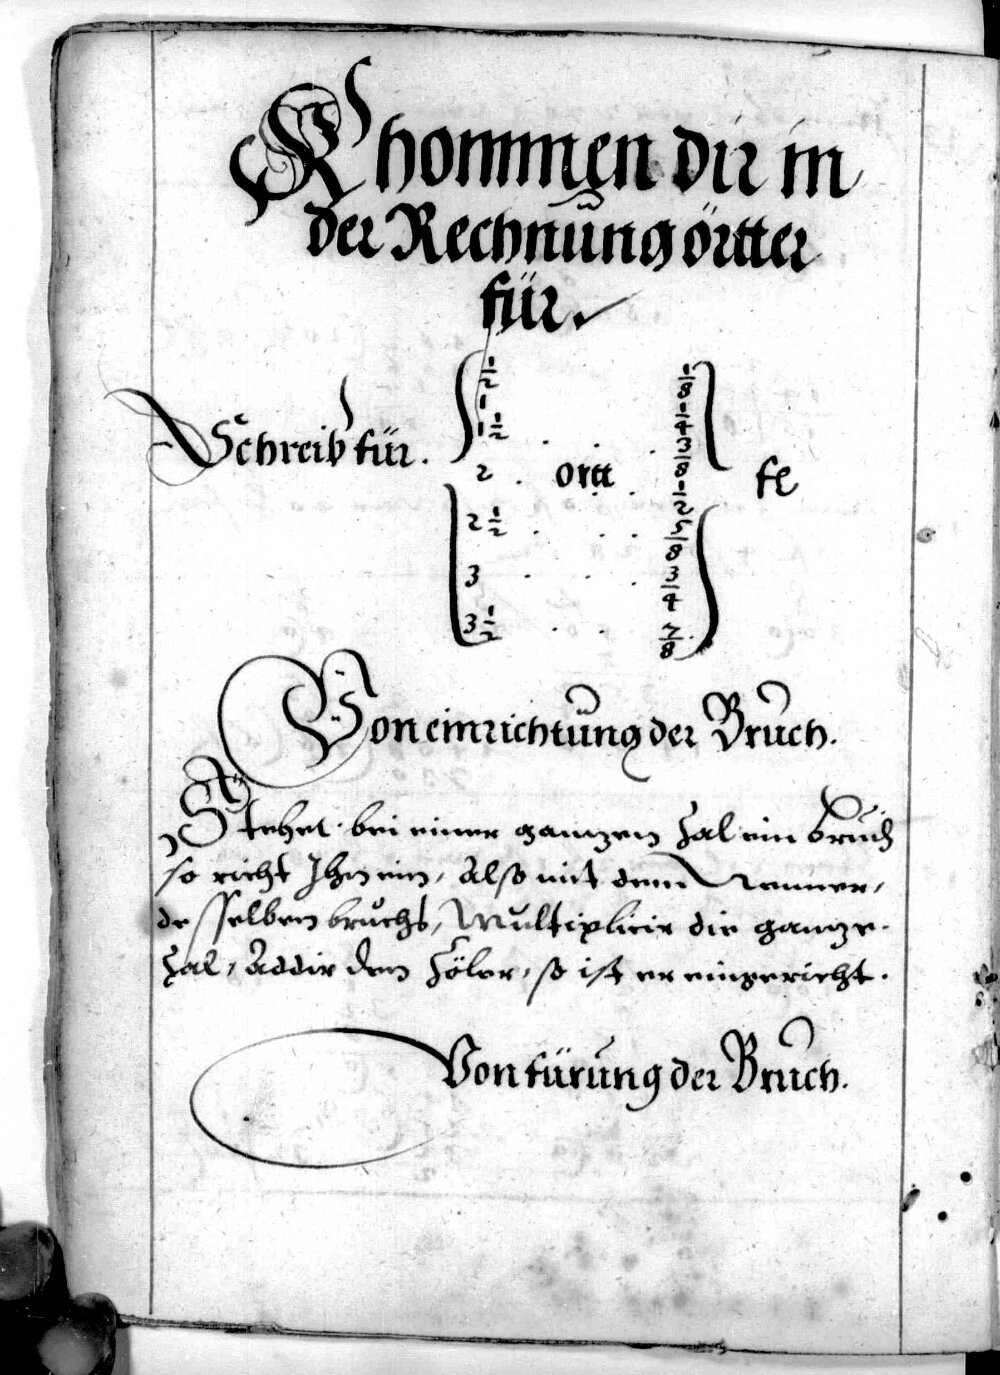 Khommen dir in
der Rechnung örtter
für.
Schreib für.
1/2 1/8
1 1/4
1 1/2 . . . 3/8
2 . ortt . 1/2 fl
2 1/2 . . . 5/8
3 . . . 3/4
3 1/2 . . 7/8
Von einrichtung der Bruch.
Stehet bei einer ganntzen Zal ein bruch
so richt Ihn ein, Also mit dem Nenner,
desselben bruchs, Multiplicir die gantze
Zal, Addir den Zöler, so ist er eingericht.
Von fürung der Bruch.